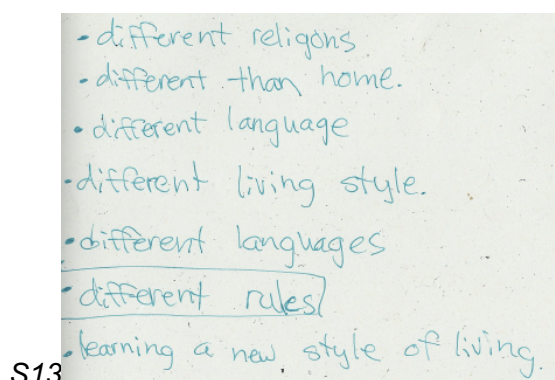 • different religons
• different than home.
• different language
• different living style.
• different languages
• different rules
• learning a new style of living.
S13